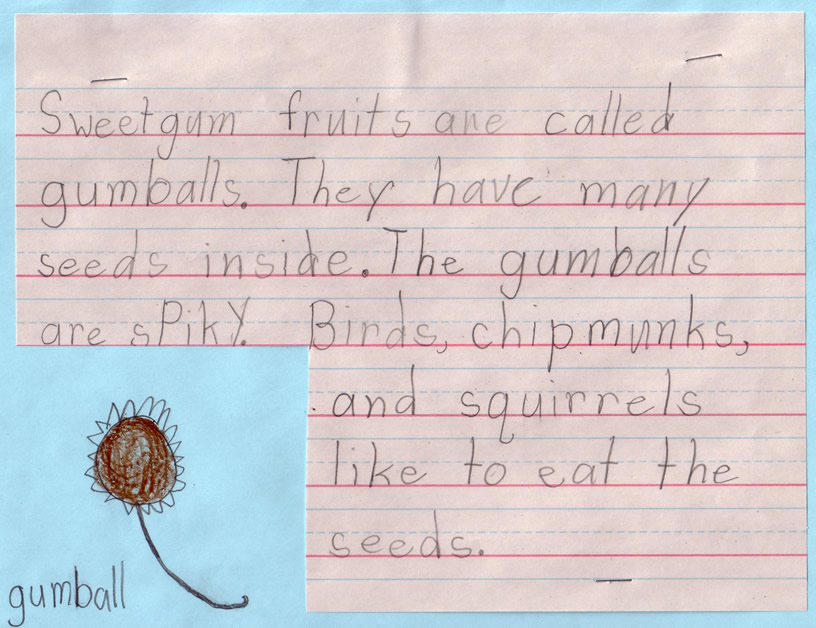 Sweetgum fruits are called
gumballs. They have many
seeds inside. The gumballs
are sPikY. Birds, chipmunks,
and squirrels
like to eat the
seeds.
gumball